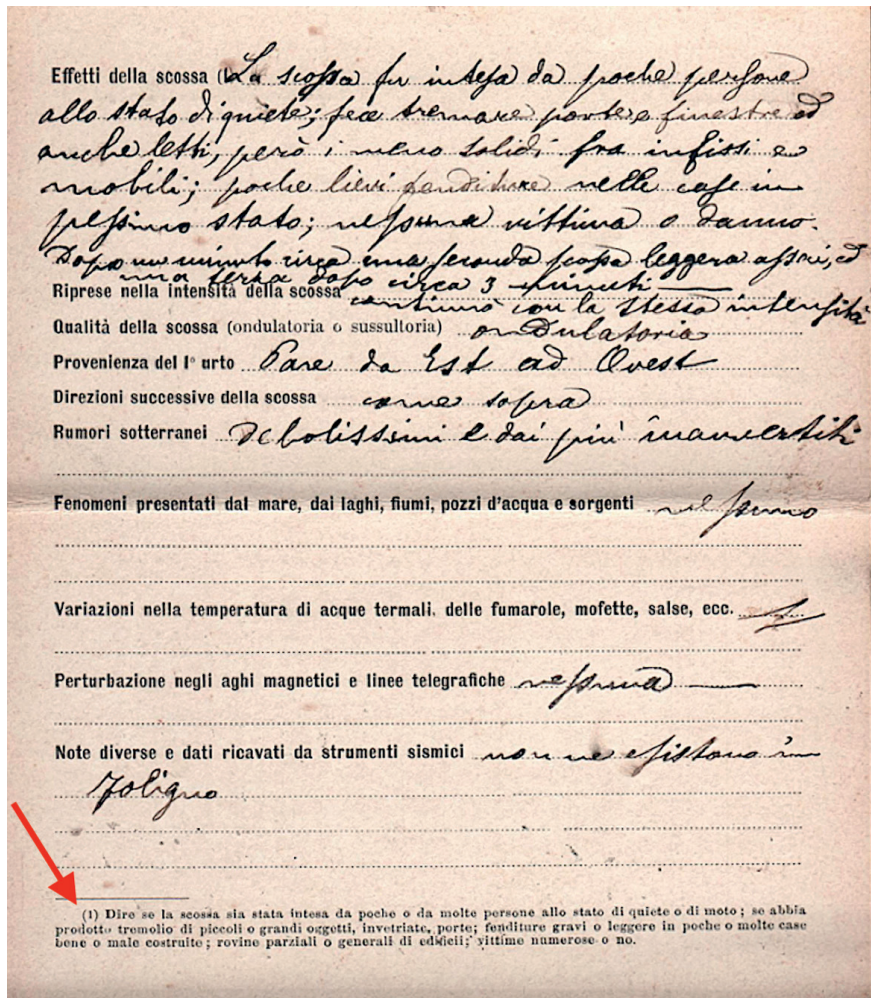 Effetti della scossa (1) La scossa fu intesa da poche persone
allo stato di quiete; fece tremare porte e finestre ed
anche letti, però i meno solidi fra infissi e
mobili; poche lievi fenditure nelle case in
pessimo stato; nessuna vittima o danno.
Dopo un minuto circa una seconda scossa leggera assai, ed
una terza dopo circa 3 minuti
Riprese nella intensità della scossa continuò con la stessa intensità
Qualità della scossa (ondulatoria o sussultoria) ondulatoria
Provenienza del 1º urto Pare da Est ad Ovest
Direzioni successive della scossa come sopra
Rumori sotterranei debolissimi e dai più inavvertiti
Fenomeni presentati dal mare, dai laghi, fiumi, pozzi d'acqua e sorgenti nessuno
Variazioni nella temperatura di acque termali, delle fumarole, mofette, salse, ecc.
Perturbazione negli aghi magnetici e linee telegrafiche nessuna
Note diverse e dati ricavati da strumenti sismici non ne esistono in
Foligno
(1) Dire se la scossa sia stata intesa da poche o da molte persone allo stato di quiete o di moto; se abbia
prodotto tremolio di piccoli o grandi oggetti, invetriate, porte; fenditure gravi o leggere in poche o molte case
bene o male costruite; rovine parziali o generali di edificii; vittime numerose o no.